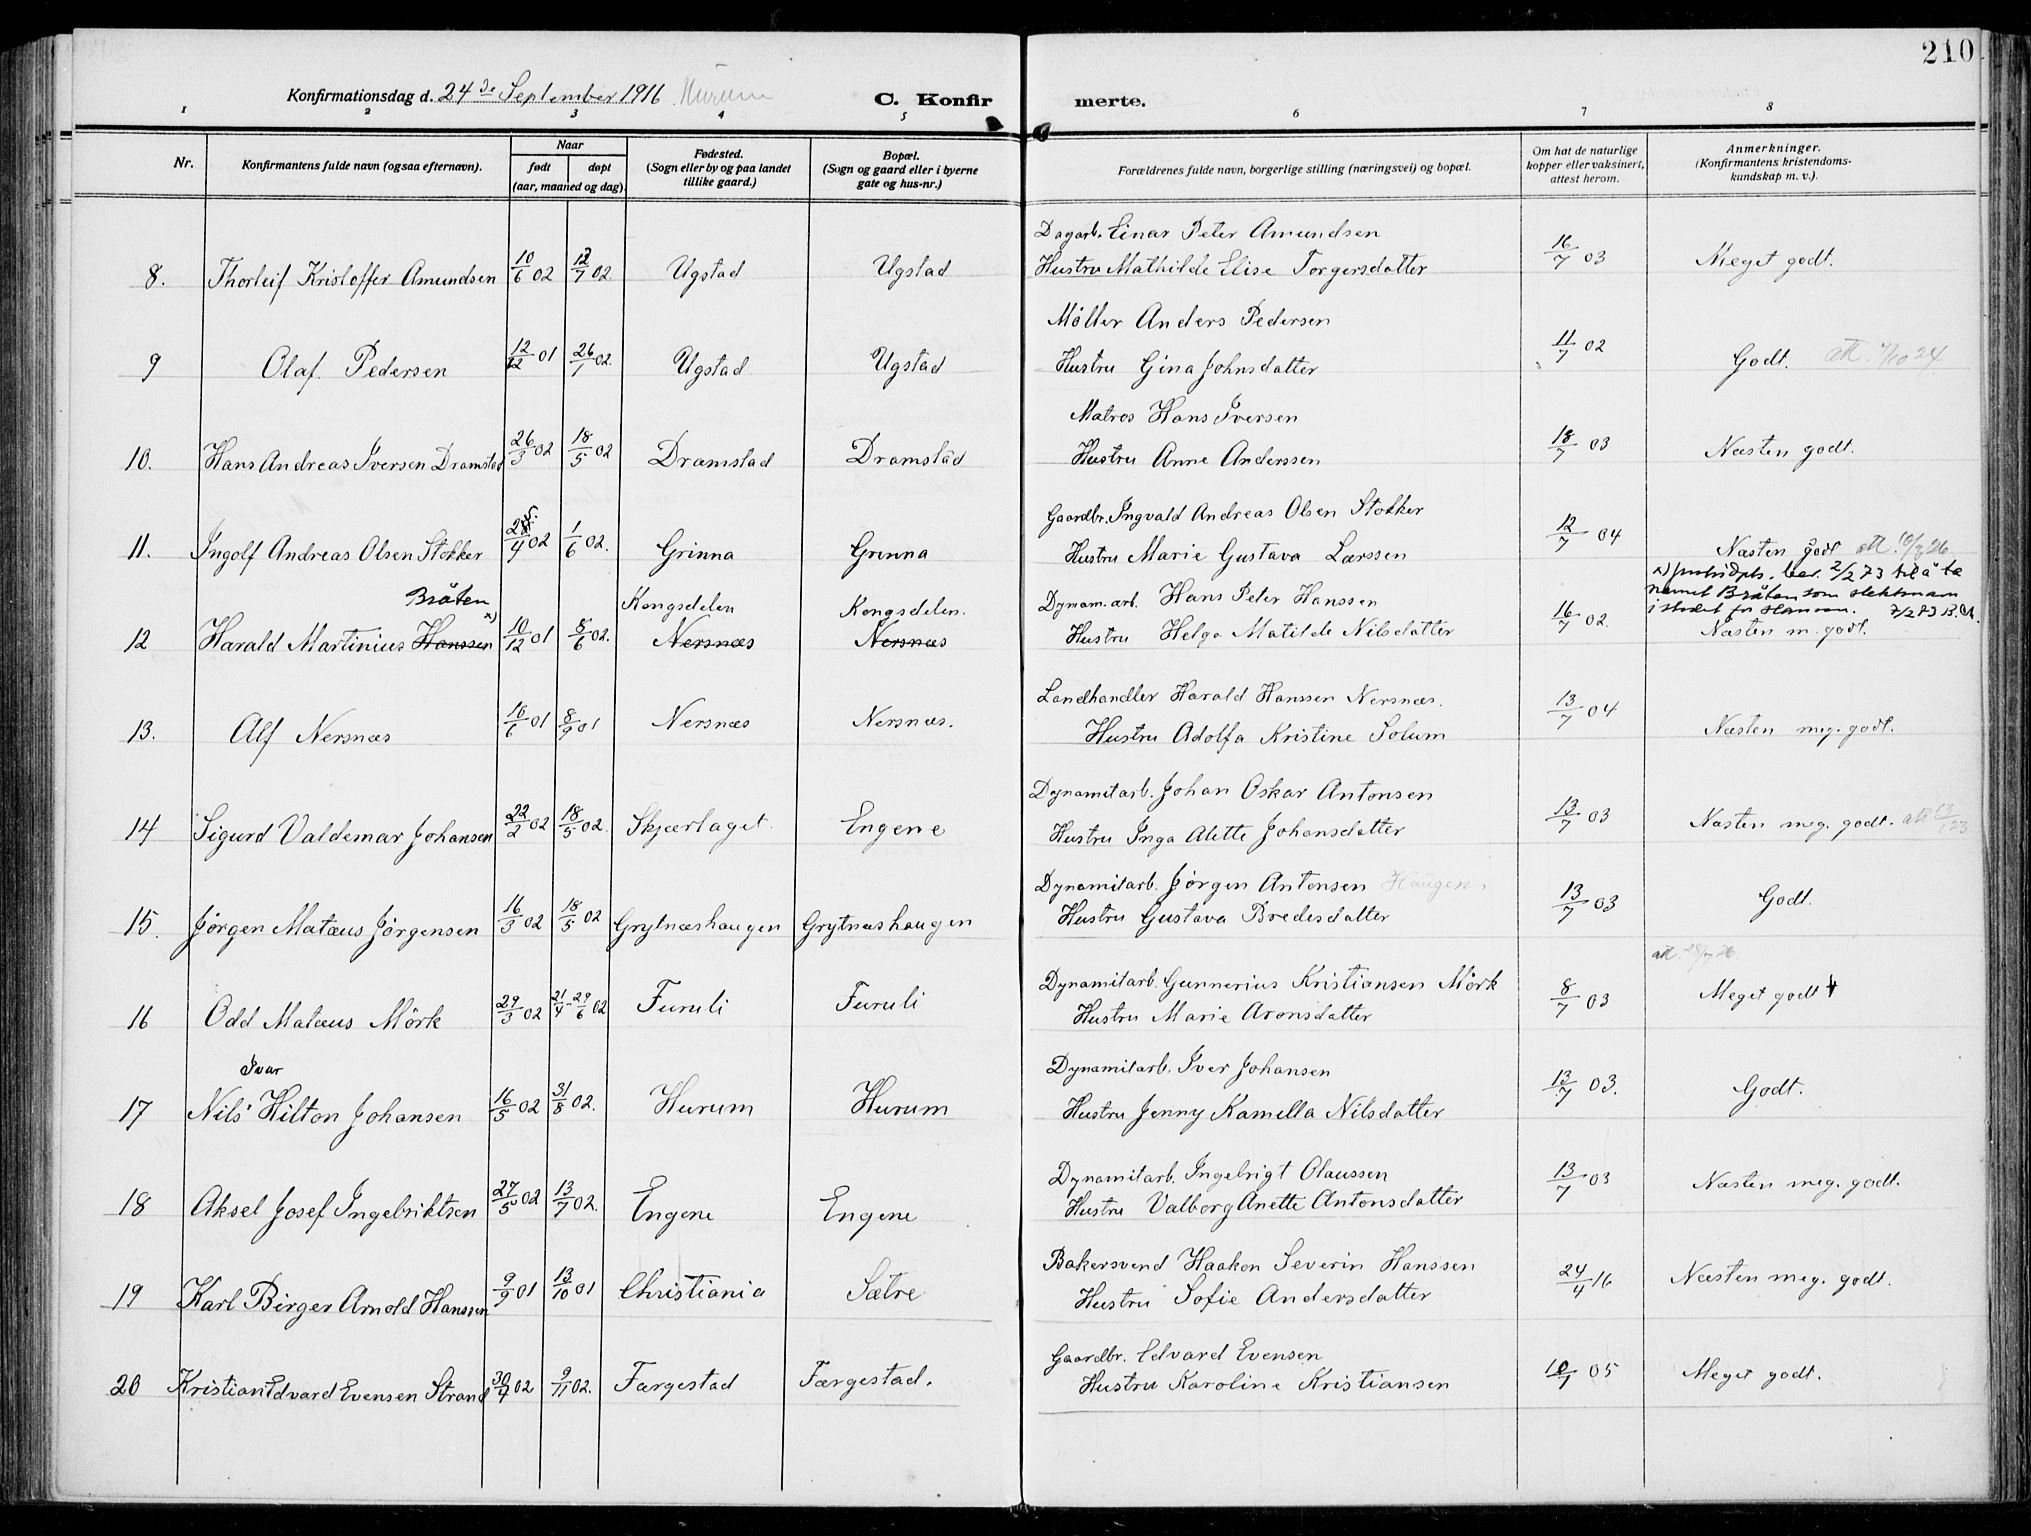 210
Konfirmationsdag d. 24de September 1916 Hurum
C. Konfirmerte.
1 2 3 4 5 6 7 8
Nr.
Konfirmantens fulde navn (ogsaa efternavn).
Naar
født døpt
(aar, maaned og dag).
Fødested.
(Sogn eller by og paa landet
tillike gaard.)
Bopæl.
(Sogn og gaard eller i byerne
gate og hus-nr.)
Forældrenes fulde navn, borgerlige stilling (næringsvei) og bopæl.
Om hat de naturlige
kopper eller vaksinert,
attest herom.
Anmerkninger.
(Konfirmantens kristendoms-
kundskap m. v.).
Dagarb. Einar Peter Amundsen
8. Thorleif Kristoffer Amundsen 10/6 02 12/7 02 Ugstad Ugstad Hustru Mathilde Elise Torgersdatter 16/7 03 Meget godt.
Møller Anders Pedersen
9 Olaf Pedersen 12/12 01 26/1 02. Ugstad Ugstad Hustru Gina Johnsdatter 11/7 02 Godt. att. 4/10 24.
Matros Hans Iversen
10. Hans Andreas Iversen Dramstad 26/3 02 18/5 02 Dramstad Dramstad Hustru Anne Anderssen 18/7 03 Næsten godt.
Gaardbr. Ingvald Andreas Olsen Stokker
11. Ingolf Andreas Olsen Stokker 25/4 02 1/6 02. Grinna Grinna Hustru Marie Gustava Larssen 12/7 04 Næsten godt att. 10/3 26
Bråten x) Kongsdelen Kongsdelen. Dynam. arb. Hans Peter Hanssen x) Justisdpts. bev. 2/2 73 til å ta
navnet Bråten som slektsnavn
i stedet for Hanssen. 7/2 73 B.A.
12 Harald Martinius Hanssen 10/12 01 8/6 02. Nersnæs Nersnæs Hustru Helga Matilde Nilsdatter 16/7 02. Næsten m. godt.
Landhandler Harald Hanssen Nersnæs.
13. Alf Nersnæs 16/6 01 8/9 01 Nersnæs Nersnæs. Hustru Adolfa Kristine Solum 13/7 04 Næsten meg. godt.
Dynamitarb. Johan Oskar Antonsen
14 Sigurd Valdemar Johansen 22/2 02 18/5 02. Skjærlaget Engene Hustru Inga Alette Johansdatter 13/7 03 Næsten meg. godt. att 13/1 23
Dynamitarb. Jørgen Antonsen Haugen
15. Jørgen Matæus Jørgensen 16/3 02 18/5 02 Grytnæshaugen Grytnæshaugen Hustru Gustava Bredesdatter 13/7 03 Godt.
att. 28/7 26.
Dynamitarb. Gunnerius Kristiansen Mörk
16 Odd Matæus Mörk 29/3 02 21/4 - 29/6 02 Furuli Furuli Hustru Marie Aronsdatter 8/7 03 Meget godt
Ivar Dynamitarb. Iver Johansen
17 Nils Hilton Johansen 16/5 02 31/8 02. Hurum Hurum Hustru Jenny Kamella Nilsdatter 13/7 03. Godt.
Dynamitarb. Ingebrigt Olaussen
18 Aksel Josef Ingebriktsen 27/5 02 13/7 02. Engene Engene Hustru Valborg Anette Antonsdatter 13/7 03 Næsten meg. godt.
Bakersvend Haakon Severin Hanssen
19 Karl Birger Arnold Hanssen 9/9 01 13/10 01 Christiania Sætre Hustru Sofie Andersdatter 24/4 16 Næsten meg. godt.
Gaardbr. Edvard Evensen
20 Kristian Edvard Evensen Strand 30/4 02 9/11 02. Færgestad Færgestad. Hustru Karoline Kristiansen 10/7 05 Meget godt.